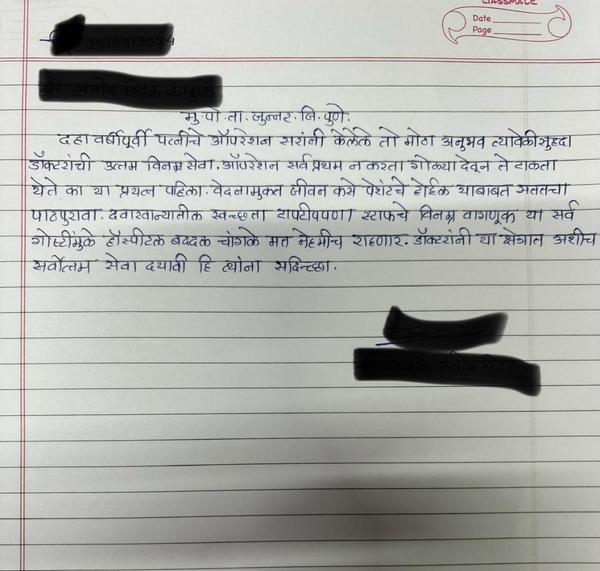 CLASSMATE
Date
Page
मु.पो.ता.जुन्नर.जि.पुणे.
दहा वर्षापूर्वी पत्नीचे ऑपरेशन सरांनी केलेले तो मोठा अनुभव त्यावेळीसुद्दा
डॉक्टरांची उत्तम विनम्र सेवा. ऑपरेशन सर्व प्रथम न करता गोळ्या देवून ते टाळता
येते का या प्रयत्न पहिला. वेदनामुक्त जीवन कसे पेशंटचे होईल याबाबत सततचा
पाठपुरावा. दवाखान्यातील स्वच्छता टापटीपपणा स्टाफचे विनम्र वागणूक या सर्व
गोष्टींमुळे हॉस्पीटल बद्दल चांगले मत नेहमीच राहणार. डॉक्टरांनी या क्षेत्रात अशीच
सर्वोत्तम सेवा दयावी हि त्यांना सदिच्छा.